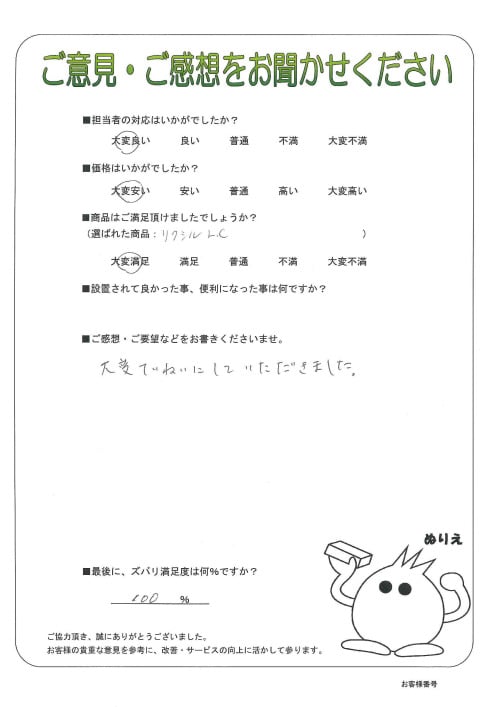 ご意見・ご感想をお聞かせください
■担当者の対応はいかがでしたか？
大変良い 良い 普通 不満 大変不満
■価格はいかがでしたか？
大変安い 安い 普通 高い 大変高い
■商品はご満足頂けましたでしょうか？
（選ばれた商品：リクシル L.C ）
大変満足 満足 普通 不満 大変不満
■設置されて良かった事、便利になった事は何ですか？
■ご感想・ご要望などをお書きくださいませ。
大変ていねいにして いただきました。
ぬりえ
■最後に、ズバリ満足度は何%ですか？
100 %
ご協力頂き、誠にありがとうございました。
お客様の貴重な意見を参考に、改善・サービスの向上に活かして参ります。
お客様番号